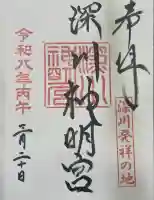 奉拝
深川発祥の地
深川神明宮
令和八年丙午
二月二日